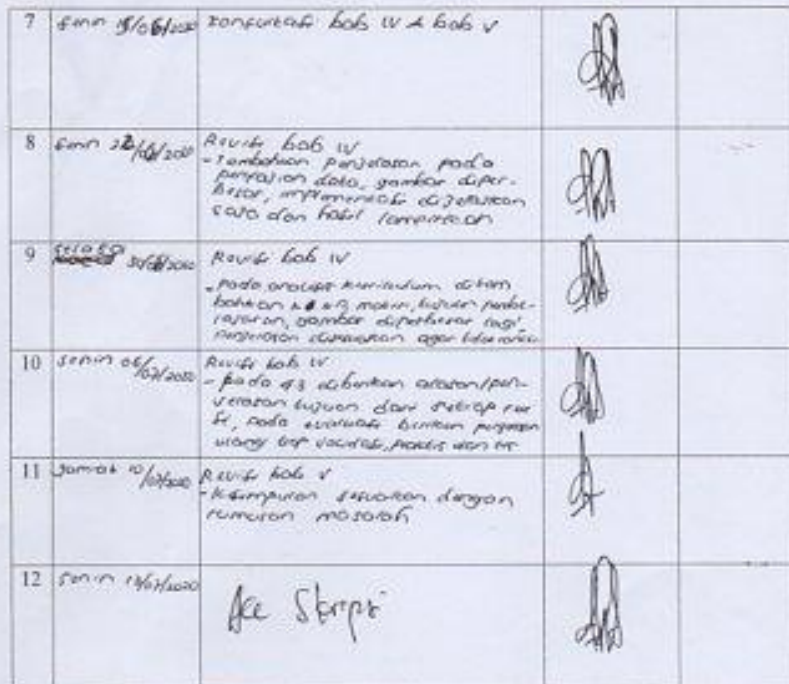 7 Senin 15/06/2020 Konsultasi bab IV & bab V
8 Senin 22/06/2020 Revisi bab IV
- Tambahkan penjelasan pada
penyajian data, gambar diper-
besar, implementasi dijelaskan
cara dan hasil
9 Selasa 30/06/2020 Revisi bab IV
- pada analisis kurikulum ditam
bahkan materi, tujuan pembe-
lajaran, gambar diperbesar lagi,
10 Senin 06/07/2020 Revisi bab IV
- pada 4.3 diberikan alasan/pen-
jelasan tujuan dari setiap
pada evaluasi berikan penjelasan
ulang
11 Jumat 10/07/2020 Revisi bab V
- Kesimpulan sesuaikan dengan
rumusan masalah
12 Senin 13/07/2020 Acc Skripsi